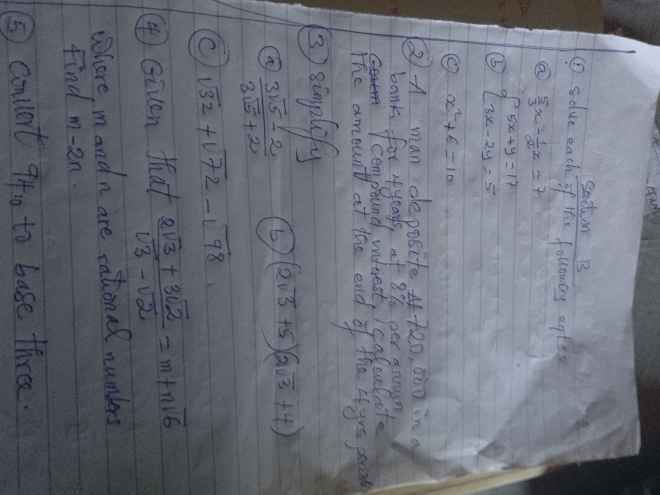 Section B
① Solve each of the following eqtns
ⓐ 5/3 x - 1/2 x = 7
ⓑ { 5x + y = 17
3x - 2y = 5
ⓒ x² + 6 = 10
② A man deposite ₦720,000 in a
bank for 4 years at 8% per annum
compound interest, calculate
the amount at the end of the 4yrs
③ Simplify
ⓐ 3√5 - 2 / 3√5 + 2 ⓑ (2√3 + 5)(2√3 + 4)
ⓒ √32 + √72 - √98
④ Given that 2√3 + 3√2 / √3 - √2 = m + n√6
where m and n are rational numbers
Find m - 2n.
⑤ Convert 94₁₀ to base three.